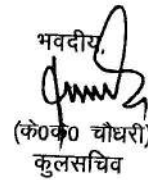 भवदीय,
(के०के० चौधरी)
कुलसचिव